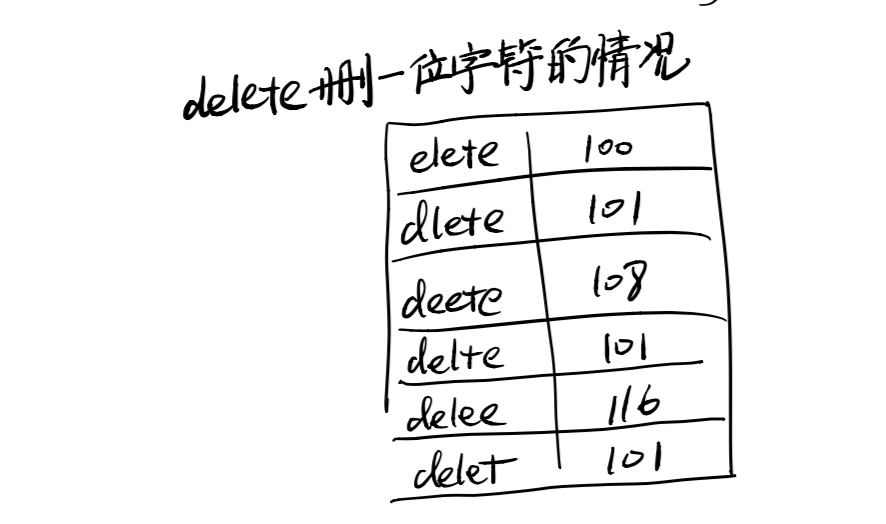 delete删一位字符的情况
elete 100
dlete 101
deete 108
delte 101
delee 116
delet 101